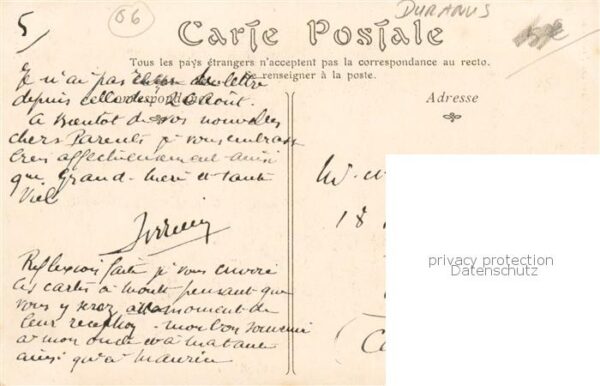 5/
06
DURANUS
Carte Postale
Tous les pays étrangers n'acceptent pas la correspondance au recto.
Se renseigner à la poste.
Correspondance
Adresse
Je n'ai pas de lettre
depuis celle du 20 août.
A bientot de vos nouvelles
chers Parents je vous embrasse
très affectueusement ainsi
que Grand-mère et tante
Reflexion faite je vous envoie
les cartes à pensant que
vous y serez au moment de
leur reception mon bon souvenir
à mon oncle et à ma tante
ainsi qu'à Maurice
18
privacy protection
Datenschutz